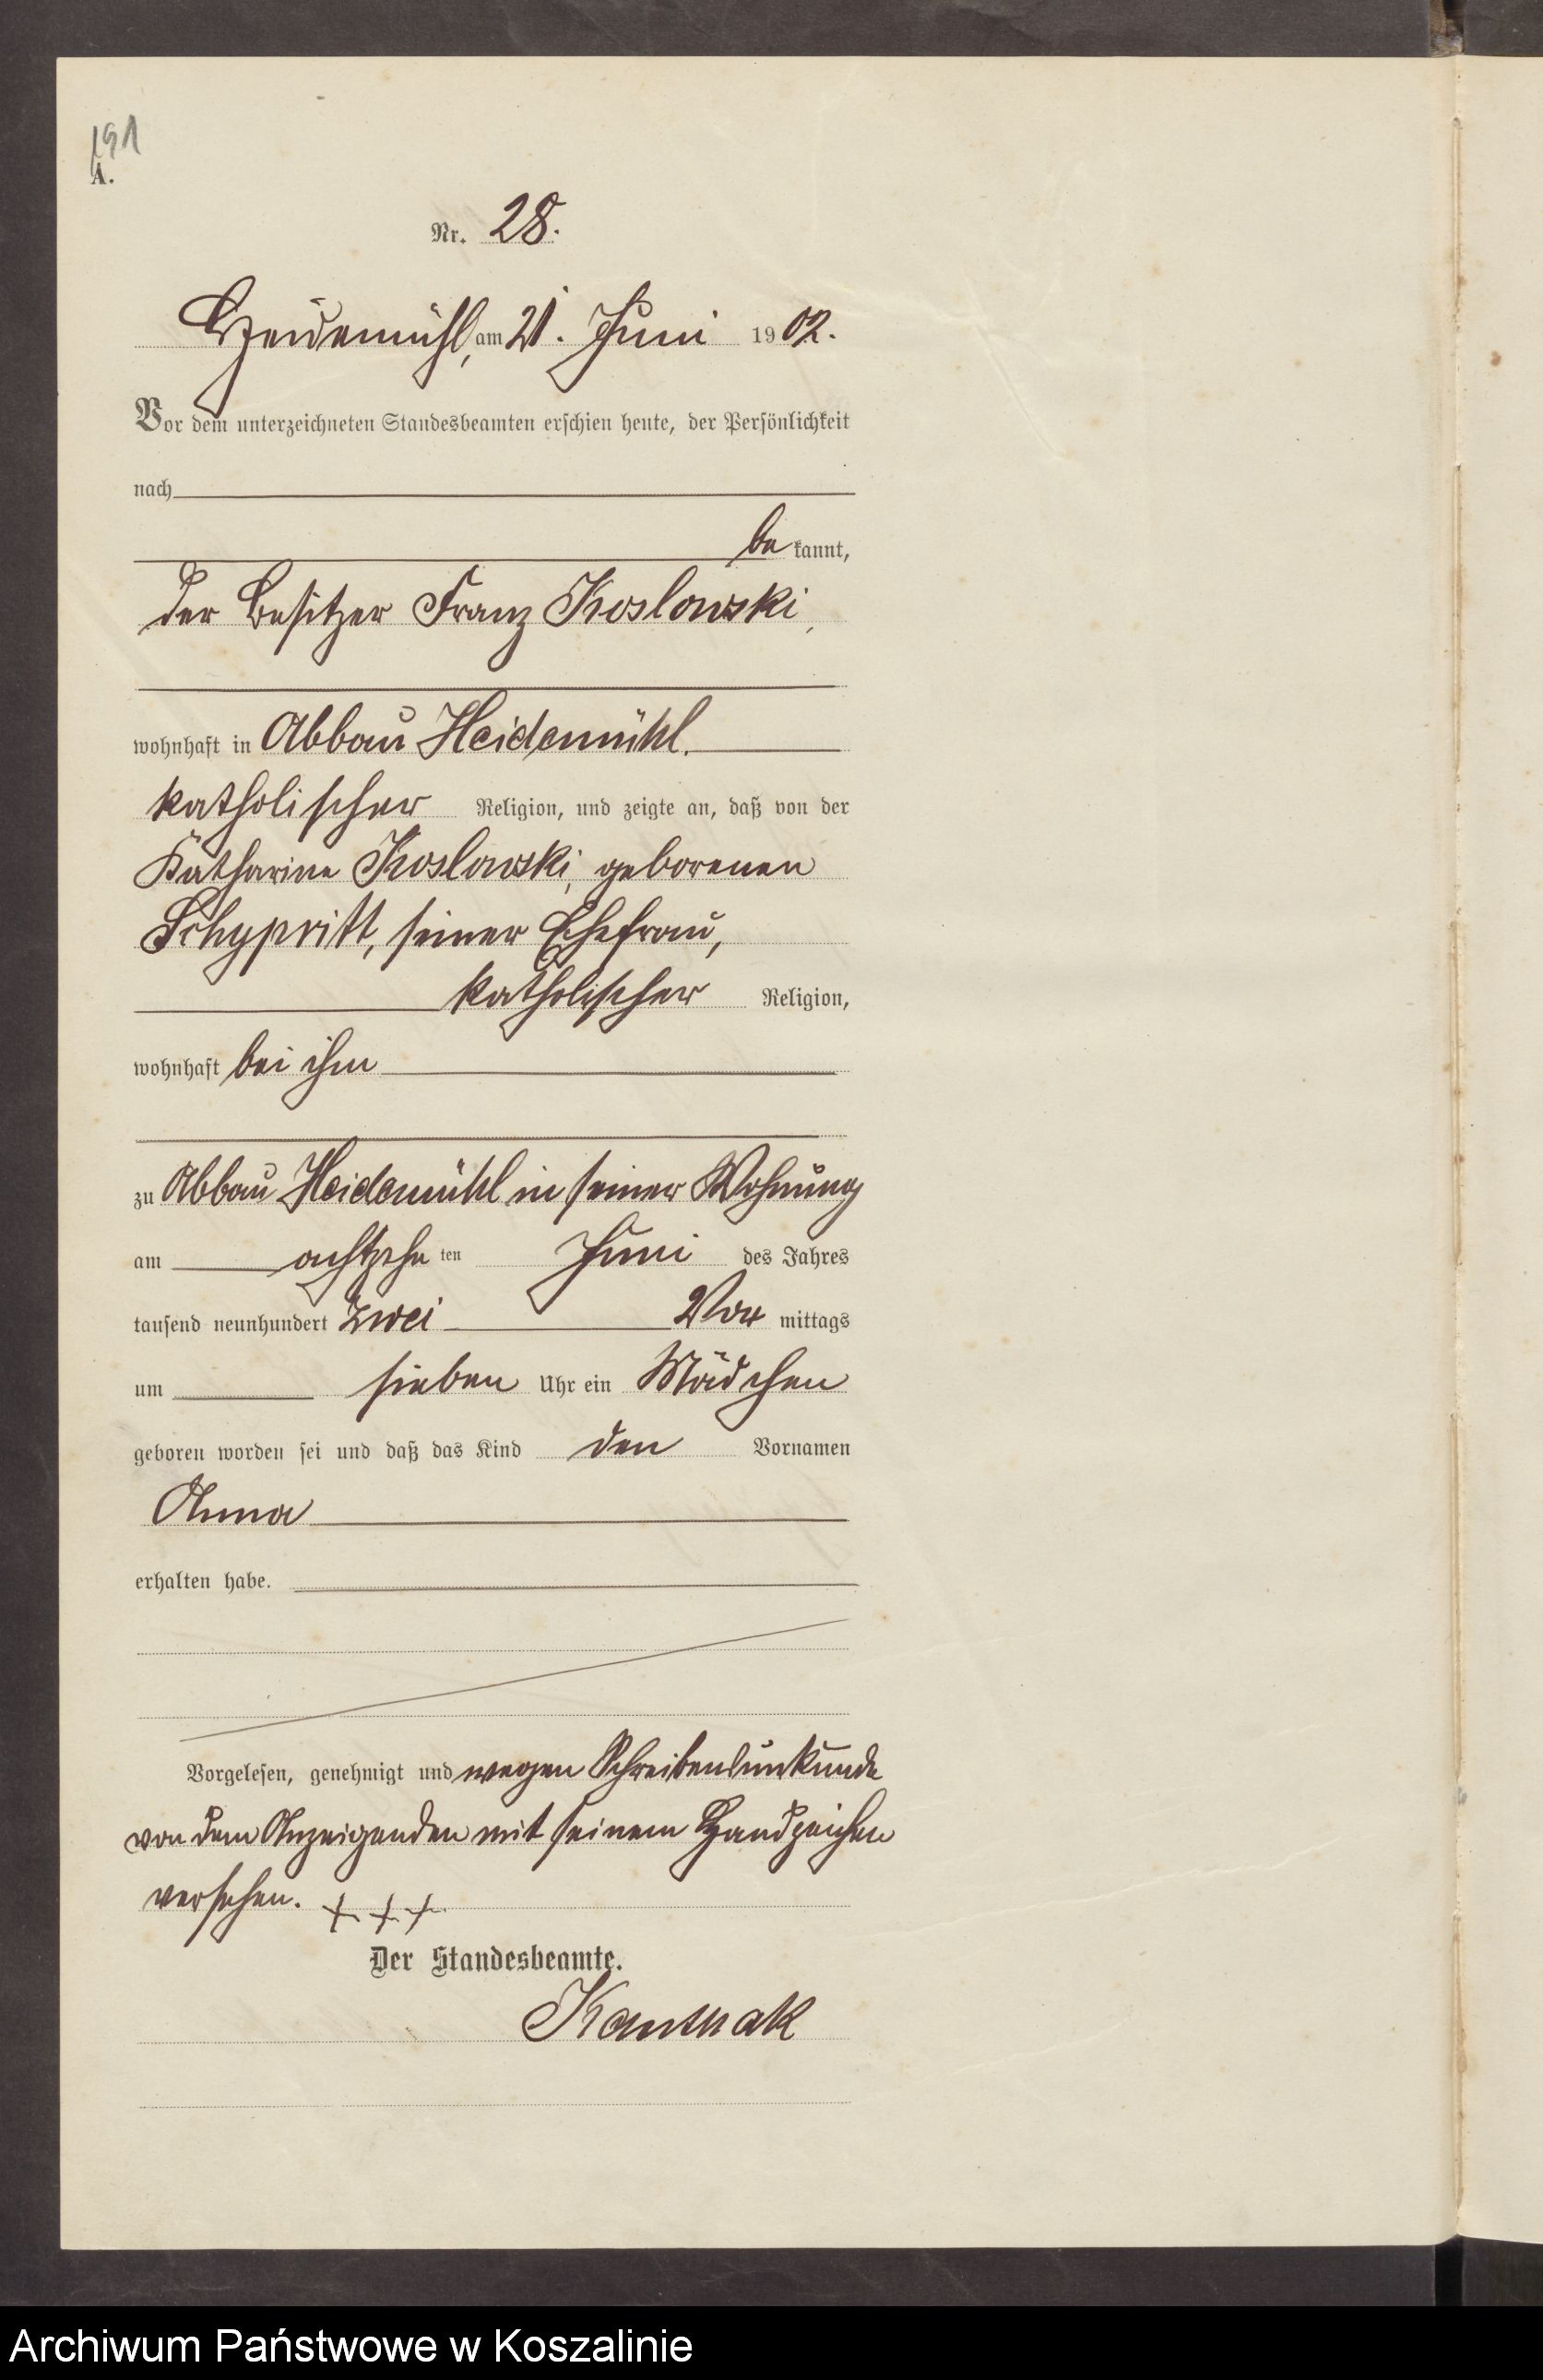 191
A.
Nr. 28.
Heidemühl, am 21. Juni 1902.
Vor dem unterzeichneten Standesbeamten erschien heute, der Persönlichkeit
nach
be kannt,
der Besitzer Franz Koslowski,
wohnhaft in Abbau Heidemühl.
katholischer Religion, und zeigte an, daß von der
Katharine Koslowski, geborenen
Schypritt, seiner Ehefrau,
katholischer Religion,
wohnhaft bei ihm
zu Abbau Heidemühl in seiner Wohnung
am achtzehn ten Juni des Jahres
tausend neunhundert zwei Vor mittags
um sieben Uhr ein Mädchen
geboren worden sei und daß das Kind den Vornamen
Anna
erhalten habe.
Vorgelesen, genehmigt und wegen Schreibensunkunde
von dem Anzeigenden mit seinem Handzeichen
versehen. + + +
Der Standesbeamte.
Archiwum Państwowe w Koszalinie